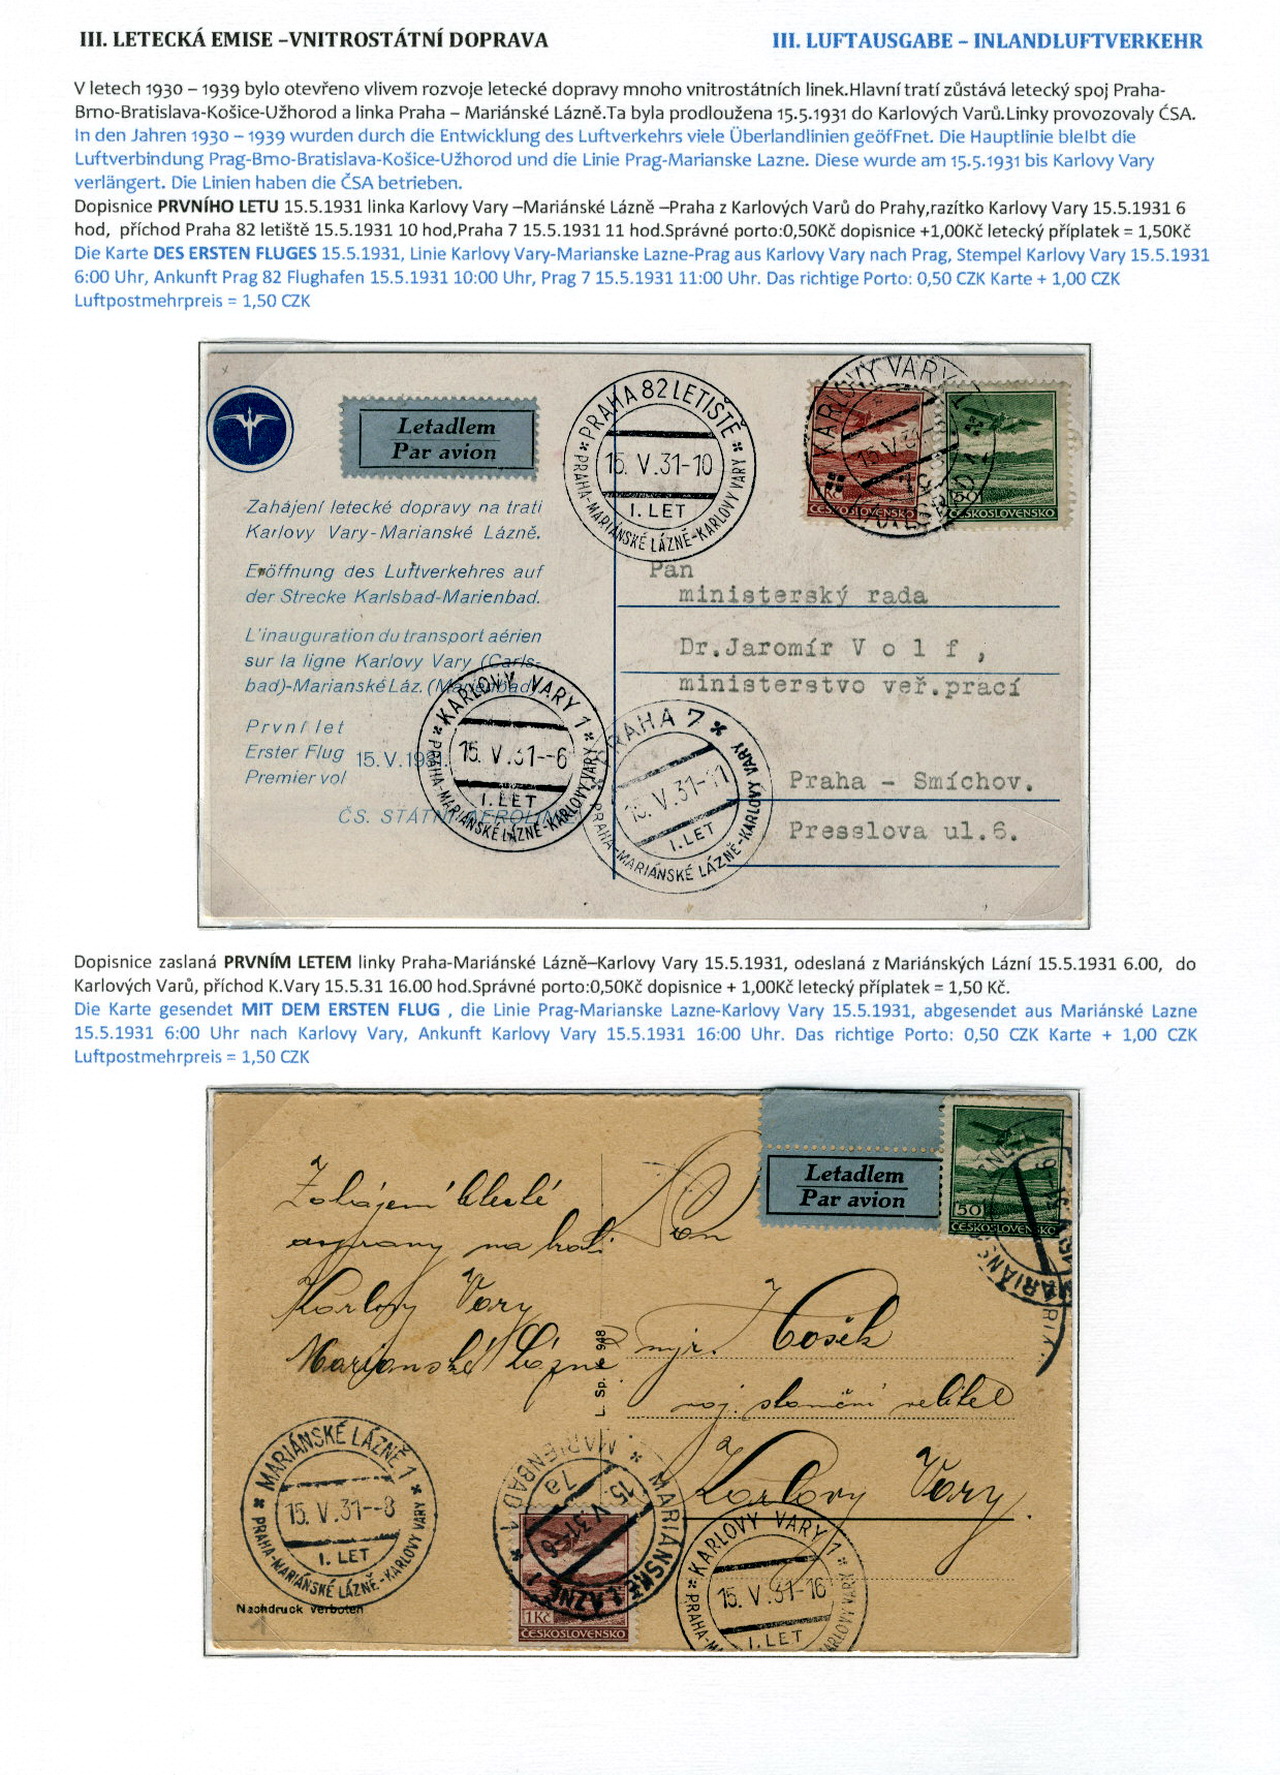 III. LETECKÁ EMISE –VNITROSTÁTNÍ DOPRAVA
III. LUFTAUSGABE – INLANDLUFTVERKEHR
V letech 1930 – 1939 bylo otevřeno vlivem rozvoje letecké dopravy mnoho vnitrostátních linek.Hlavní tratí zůstává letecký spoj Praha-
Brno-Bratislava-Košice-Užhorod a linka Praha – Mariánské Lázně.Ta byla prodloužena 15.5.1931 do Karlových Varů.Linky provozovaly ČSA.
In den Jahren 1930 – 1939 wurden durch die Entwicklung des Luftverkehrs viele Überlandlinien geöfFnet. Die Hauptlinie bleibt die
Luftverbindung Prag-Brno-Bratislava-Košice-Užhorod und die Linie Prag-Marianske Lazne. Diese wurde am 15.5.1931 bis Karlovy Vary
verlängert. Die Linien haben die ČSA betrieben.
Dopisnice PRVNÍHO LETU 15.5.1931 linka Karlovy Vary –Mariánské Lázně –Praha z Karlových Varů do Prahy,razítko Karlovy Vary 15.5.1931 6
hod, příchod Praha 82 letiště 15.5.1931 10 hod,Praha 7 15.5.1931 11 hod.Správné porto:0,50Kč dopisnice +1,00Kč letecký příplatek = 1,50Kč
Die Karte DES ERSTEN FLUGES 15.5.1931, Linie Karlovy Vary-Marianske Lazne-Prag aus Karlovy Vary nach Prag, Stempel Karlovy Vary 15.5.1931
6:00 Uhr, Ankunft Prag 82 Flughafen 15.5.1931 10:00 Uhr, Prag 7 15.5.1931 11:00 Uhr. Das richtige Porto: 0,50 CZK Karte + 1,00 CZK
Luftpostmehrpreis = 1,50 CZK
Letadlem
Par avion
PRAHA 82 LETIŠTĚ
15. V. 31-10
I. LET
PRAHA-MARIÁNSKÉ LÁZNĚ-KARLOVY VARY
KARLOVY VARY
1 Kč
ČESKOSLOVENSKO
50
ČESKOSLOVENSKO
Zahájení letecké dopravy na trati
Karlovy Vary-Marianské Lázně.
Eröffnung des Luftverkehres auf
der Strecke Karlsbad-Marienbad.
L'inauguration du transport aérien
sur la ligne Karlovy Vary (Carls-
bad)-Marianské Láz. (Marienbad)
První let
Erster Flug 15.V.1931
Premier vol
ČS. STÁTNÍ AEROLINIE
KARLOVY VARY 1
15. V. 31--6
I. LET
PRAHA-MARIÁNSKÉ LÁZNĚ-KARLOVY VARY
PRAHA 7
15. V. 31-11
I. LET
PRAHA-MARIÁNSKÉ LÁZNĚ-KARLOVY VARY
Pan
ministerský rada
Dr.Jaromír V o l f ,
ministerstvo veř.prací
Praha - Smíchov.
Presslova ul.6.
Dopisnice zaslaná PRVNÍM LETEM linky Praha-Mariánské Lázně–Karlovy Vary 15.5.1931, odeslaná z Mariánských Lázní 15.5.1931 6.00, do
Karlových Varů, příchod K.Vary 15.5.31 16.00 hod.Správné porto:0,50Kč dopisnice + 1,00Kč letecký příplatek = 1,50 Kč.
Die Karte gesendet MIT DEM ERSTEN FLUG , die Linie Prag-Marianske Lazne-Karlovy Vary 15.5.1931, abgesendet aus Mariánské Lazne
15.5.1931 6:00 Uhr nach Karlovy Vary, Ankunft Karlovy Vary 15.5.1931 16:00 Uhr. Das richtige Porto: 0,50 CZK Karte + 1,00 CZK
Luftpostmehrpreis = 1,50 CZK
Letadlem
Par avion
50
ČESKOSLOVENSKO
Zahájení letecké
dopravy na trati
Karlovy Vary
Marianské Lázně
Pan
Hošek
velitel
Karlovy Vary
L. Sp. 948
MARIÁNSKÉ LÁZNĚ 1
15. V. 31--8
I. LET
PRAHA-MARIÁNSKÉ LÁZNĚ-KARLOVY VARY
MARIÁNSKÉ LÁZNĚ 1
MARIENBAD 1
15. V. 31-6
7a
1 Kč
ČESKOSLOVENSKO
KARLOVY VARY 1
15. V. 31-16
I. LET
Nachdruck verboten